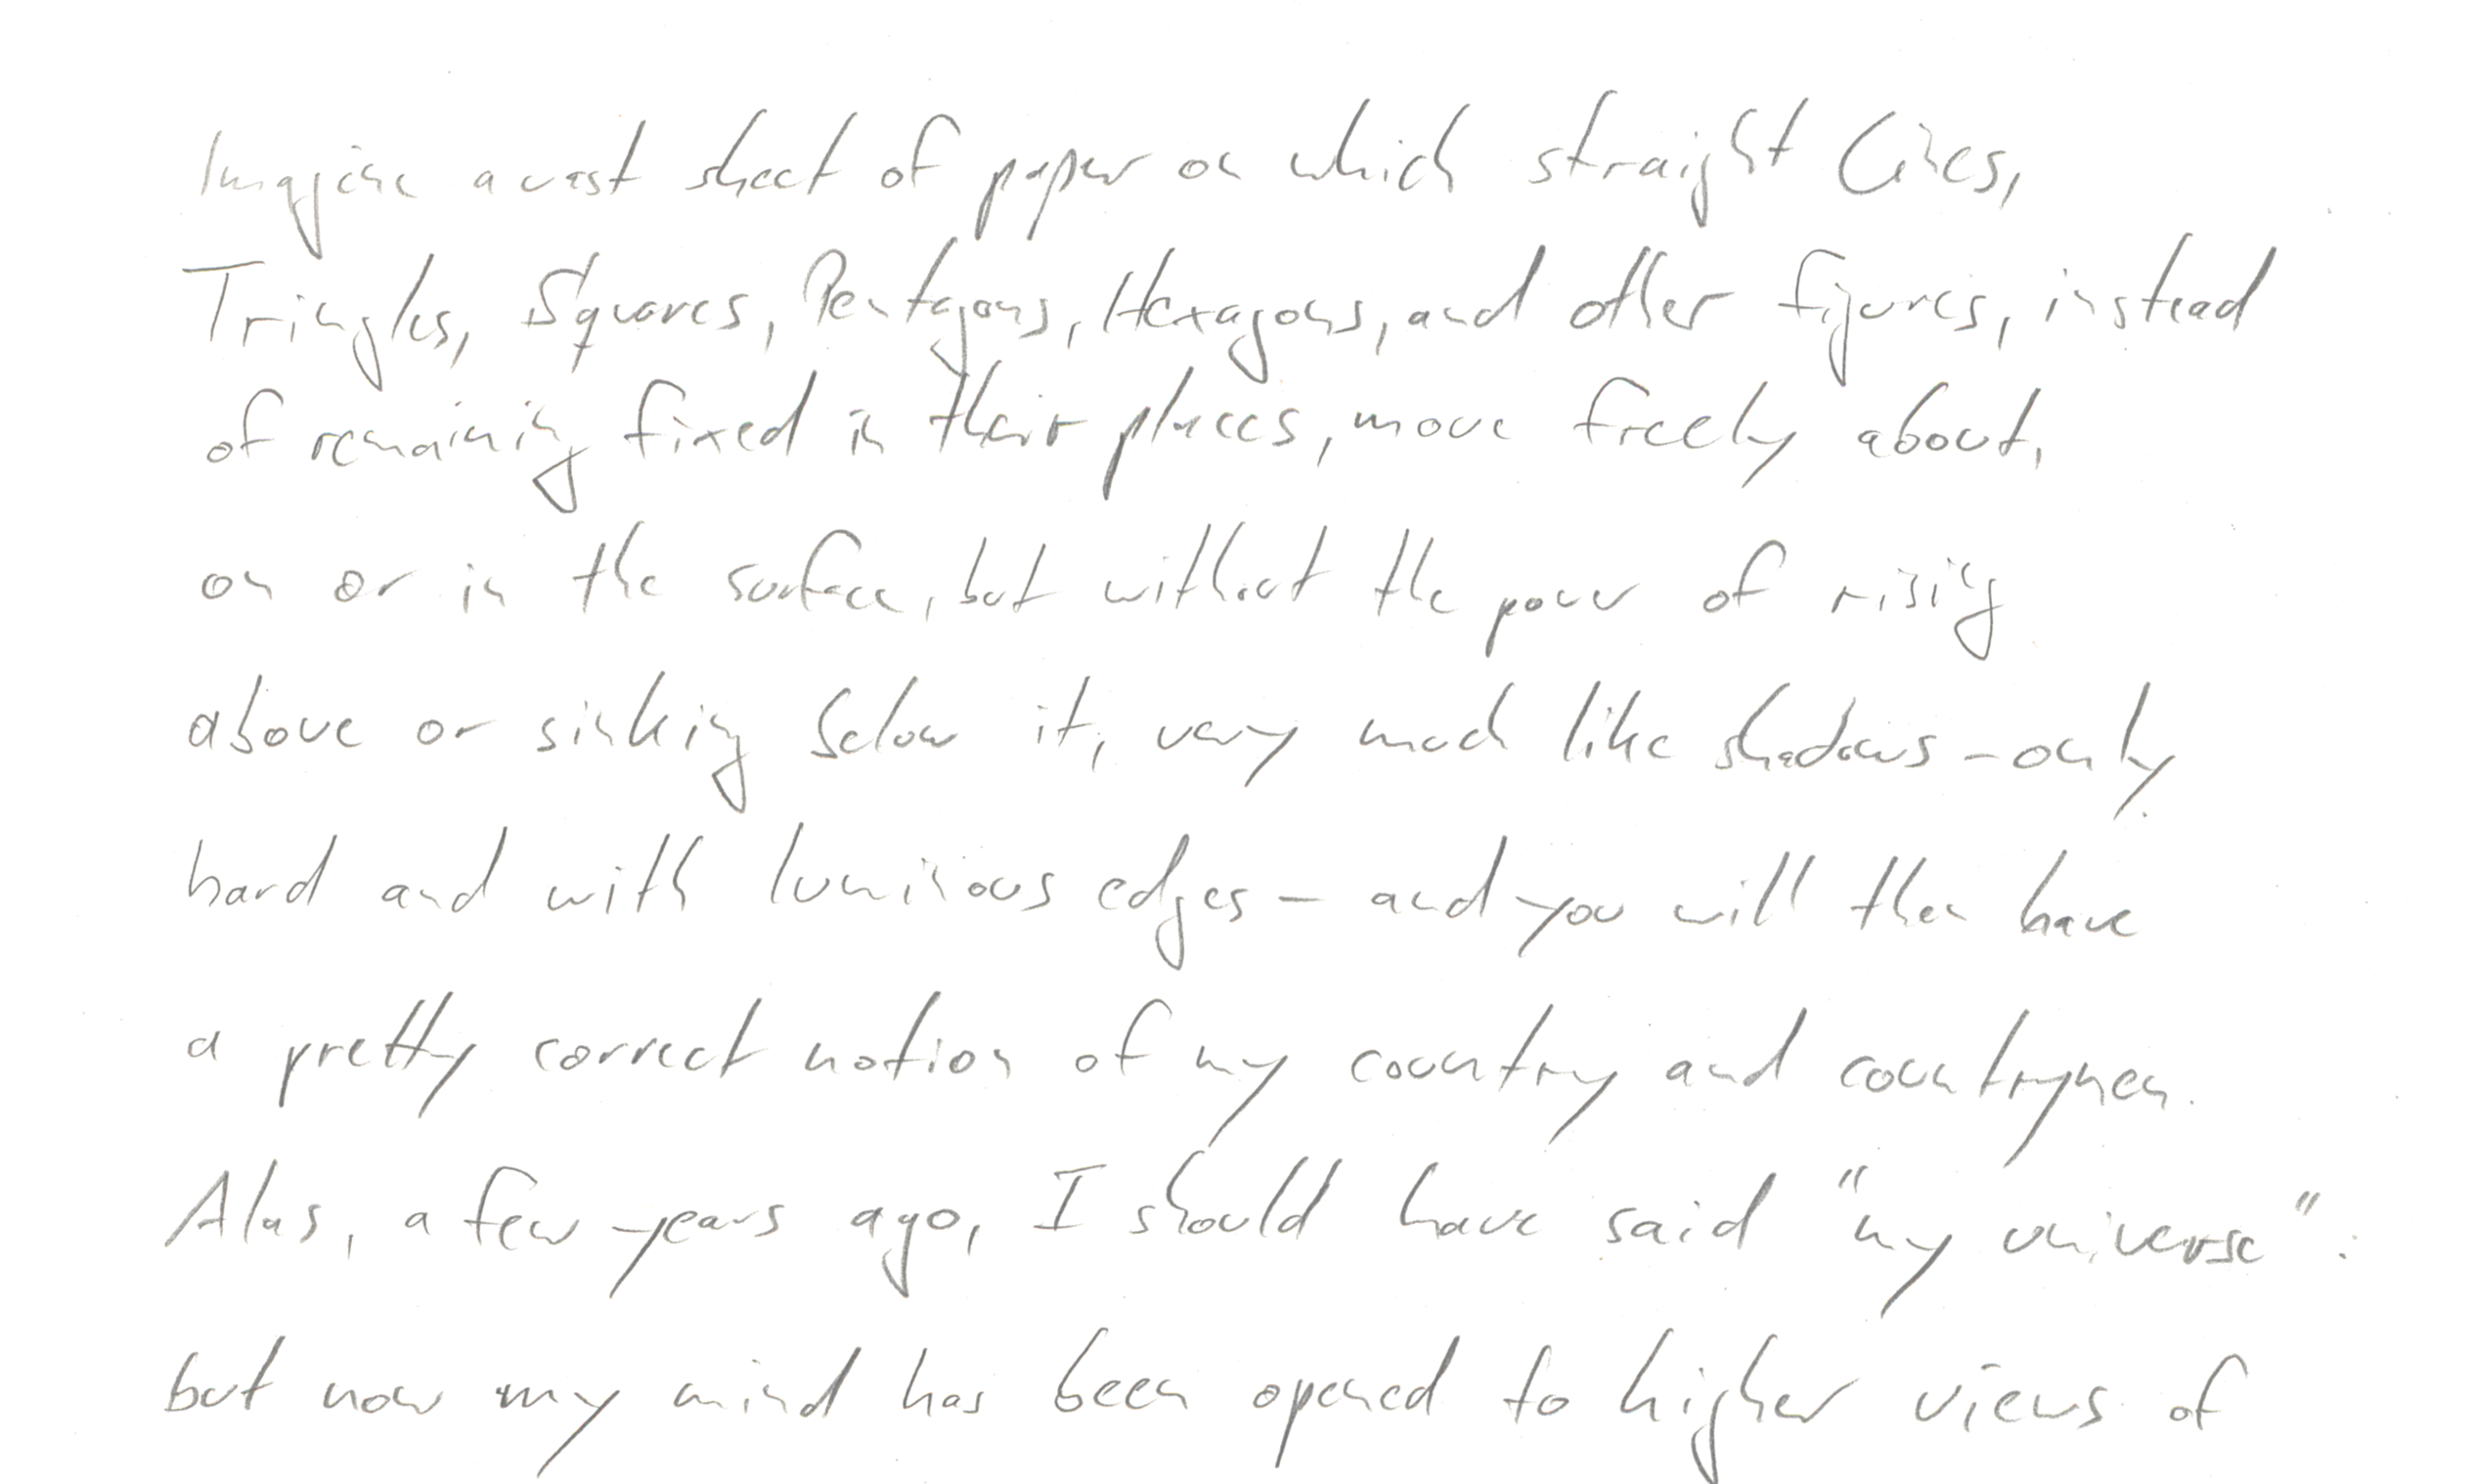 Imagine a vast sheet of paper on which straight Lines,
Tringles, Squares, Pentagons, Hexagons, and other figures, instead
of remaining fixed in their places, move freely about,
on or in the surface, but without the power of rising
above or sinking below it, very much like shadows - only
hard and with luminous edges - and you will then have
a pretty correct notion of my country and countrymen.
Alas, a few years ago, I should have said "my universe":
but now my mind has been opened to higher views of